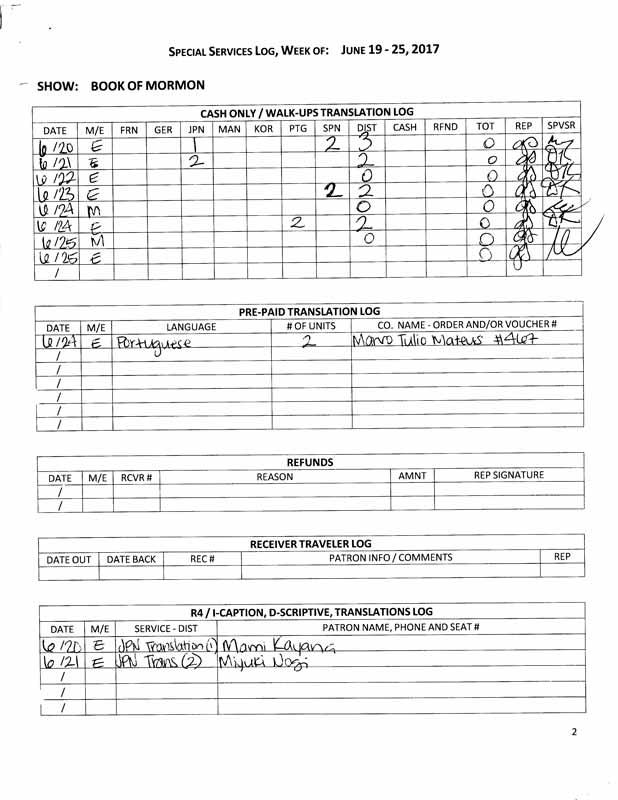 SPECIAL SERVICES LOG, WEEK OF: JUNE 19 - 25, 2017
SHOW: BOOK OF MORMON
CASH ONLY / WALK-UPS TRANSLATION LOG
DATE M/E FRN GER JPN MAN KOR PTG SPN DIST CASH RFND TOT REP SPVSR
6/20 E 1 2 3 0
6/21 E 2 2 0
6/22 E 0 0
6/23 E 2 2 0
6/24 M 0 0
6/24 E 2 2 0
6/25 M 0 0
6/25 E 0
/
PRE-PAID TRANSLATION LOG
DATE M/E LANGUAGE # OF UNITS CO. NAME - ORDER AND/OR VOUCHER #
6/24 E Portuguese 2 Tulio Mateus #467
/
/
/
/
/
/
REFUNDS
DATE M/E RCVR # REASON AMNT REP SIGNATURE
/
/
RECEIVER TRAVELER LOG
DATE OUT DATE BACK REC # PATRON INFO / COMMENTS REP
R4 / I-CAPTION, D-SCRIPTIVE, TRANSLATIONS LOG
DATE M/E SERVICE - DIST PATRON NAME, PHONE AND SEAT #
6/20 E JPN Translation (1) Mami Kayana
6/21 E JPN Trans (2) Miyuki Nogi
/
/
/
2